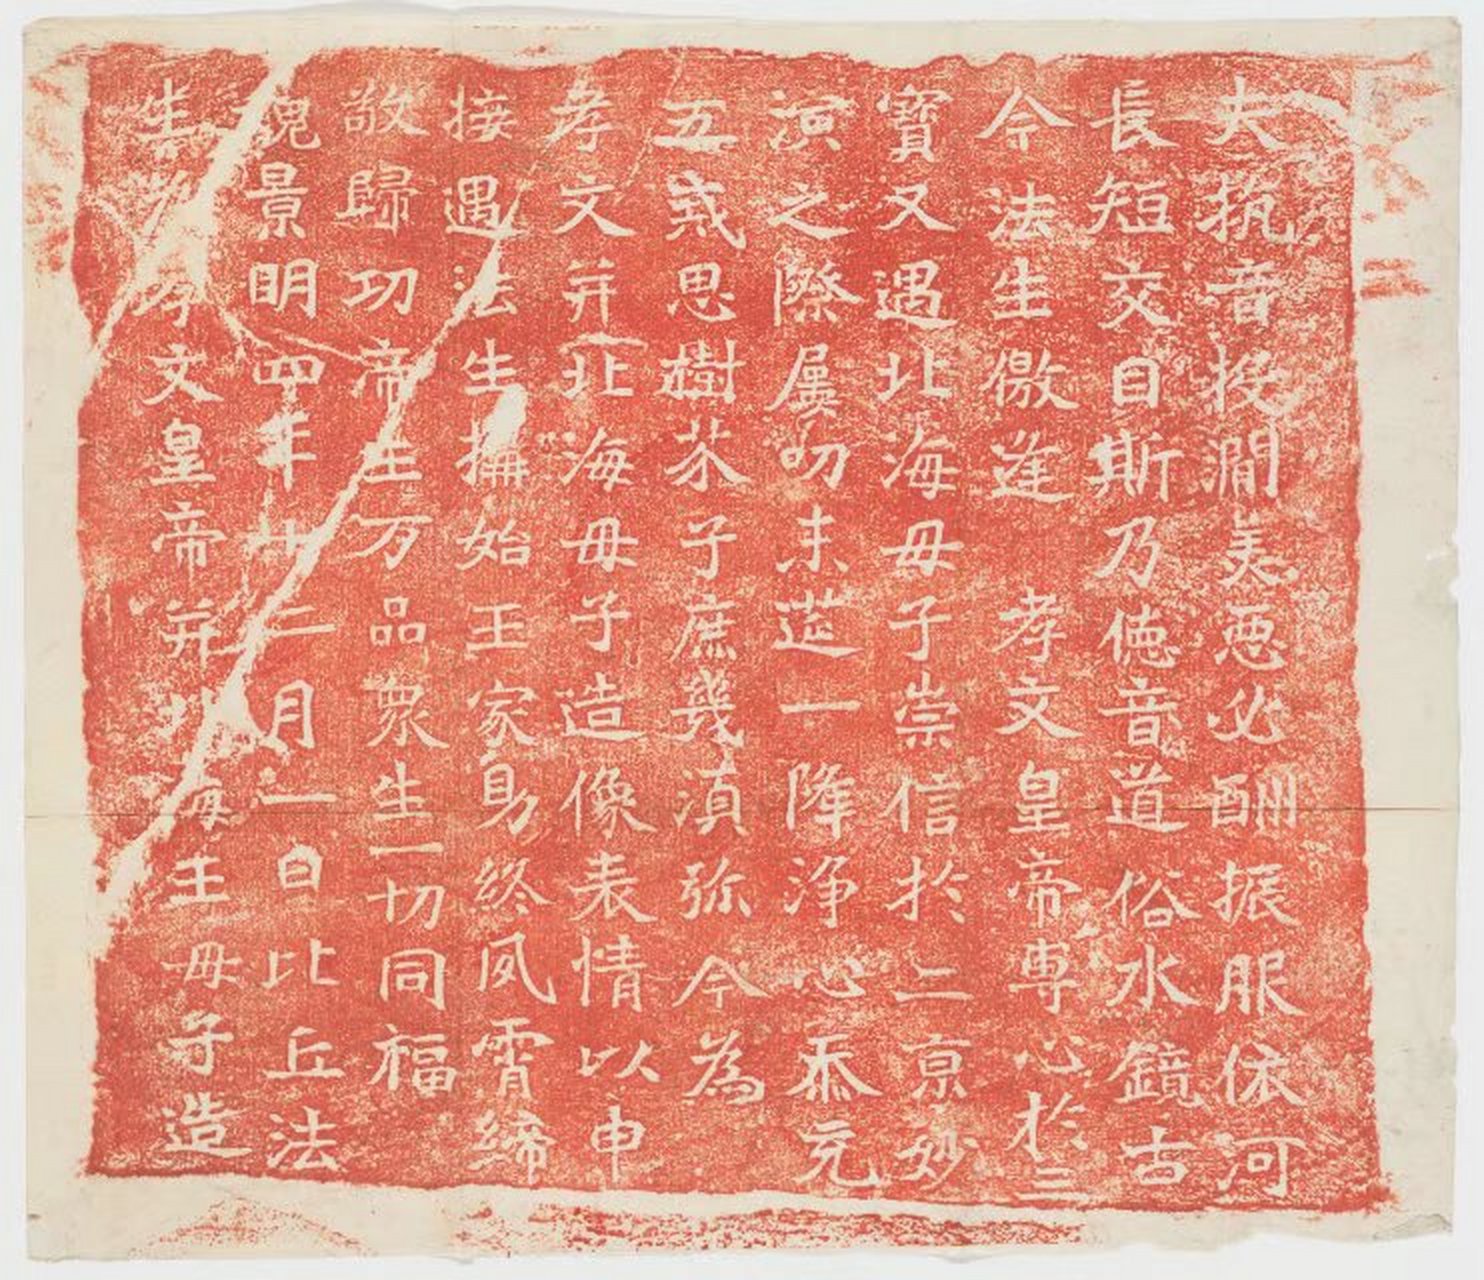 夫抗音投澗美惡必酬振服依河
長短交目斯乃德音道俗水鏡古
今法生儌逢 孝文皇帝專心於三
寶又遇北海母子崇信於二京妙
演之際屢叨末筵一降淨心忝充
五戒思樹芥子庶幾須弥今為
孝文并北海母子造像表情以申
接遇法生構始王家助終夙霄締
敬歸功帝王万品眾生一切同福
魏景明四年十二月一日比丘法
生為孝文皇帝并北海王母子造